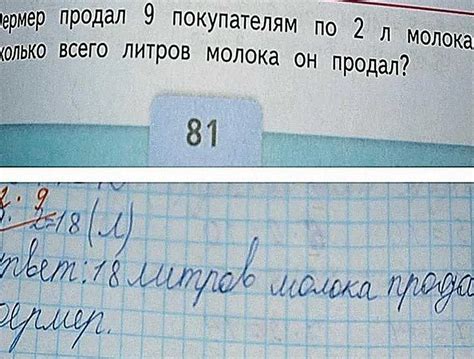 ермер продал 9 покупателям по 2 л молока
колько всего литров молока он продал?
81
2 · 9
2=18 (л)
твет: 18 литров молока прода
ермер.